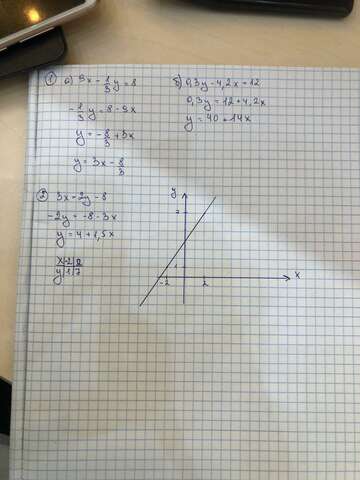 ① а) 9x - 1/3 y = 8
-1/3 y = 8 - 9x
y = -8/3 + 3x
y = 3x - 8/3
б) 0,3y - 4,2x = 12
0,3y = 12 + 4,2x
y = 40 + 14x
② 3x - 2y - 8
-2y = -8 - 3x
y = 4 + 1,5x
x -2 2
y 1 7
y
7
1
-2 2 x